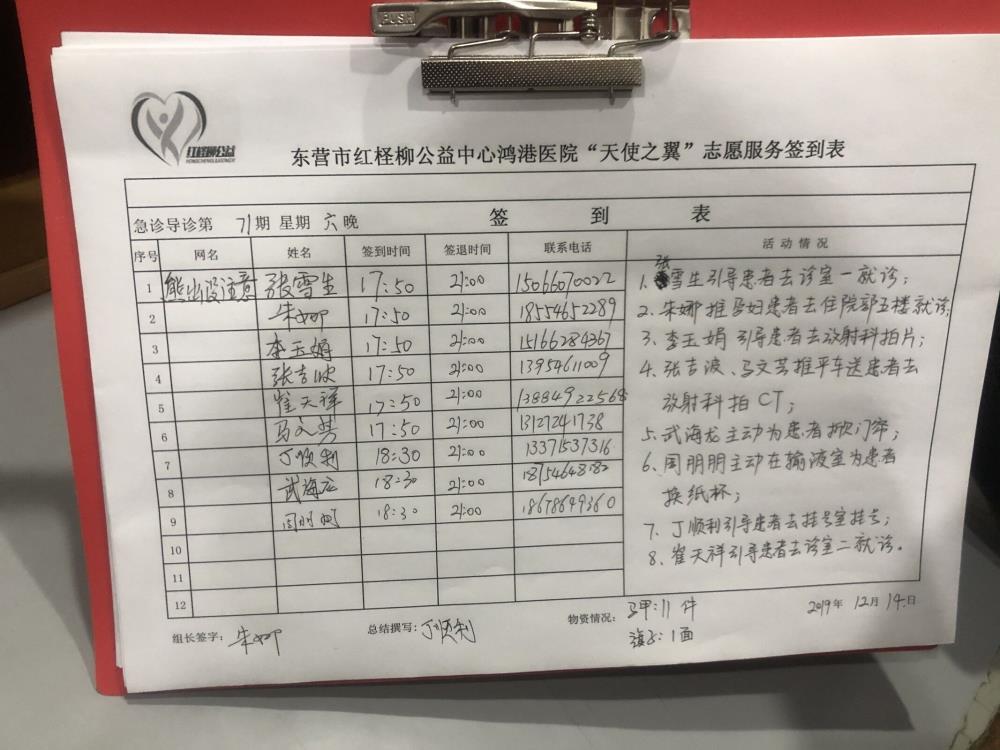 PUSH
红柽柳公益
HONGCHENGLIUGONGYI
东营市红柽柳公益中心鸿港医院“天使之翼”志愿服务签到表
急诊导诊第 71期 星期 六 晚 签到表
序号 网名 姓名 签到时间 签退时间 联系电话 活动情况
1 熊出没注意 张雪生 17:50 21:00 15066070022
2 朱娜 17:50 21:00 18554652289
3 李玉娟 17:50 21:00 15166284367
4 张吉波 17:50 21:00 13954611009
5 崔天祥 17:50 21:00 13884922568
6 马文芸 17:50 21:00 13127241738
7 丁顺利 18:30 21:00 13371537316
8 武海龙 18:30 21:00 18754648182
9 周朋朋 18:30 21:00 18678649360
10
11
12
1. 张雪生引导患者去诊室一就诊;
2. 朱娜推孕妇患者去住院部五楼就诊;
3. 李玉娟引导患者去放射科拍片;
4. 张吉波、马文芸推平车送患者去
放射科拍CT;
5. 武海龙主动为患者掀门帘;
6. 周朋朋主动在输液室为患者
换纸杯;
7. 丁顺利引导患者去挂号室挂号;
8. 崔天祥引导患者去诊室二就诊。
组长签字: 朱娜 总结撰写: 丁顺利 物资情况: 马甲:11件 2019年12月14日
旗子:1面